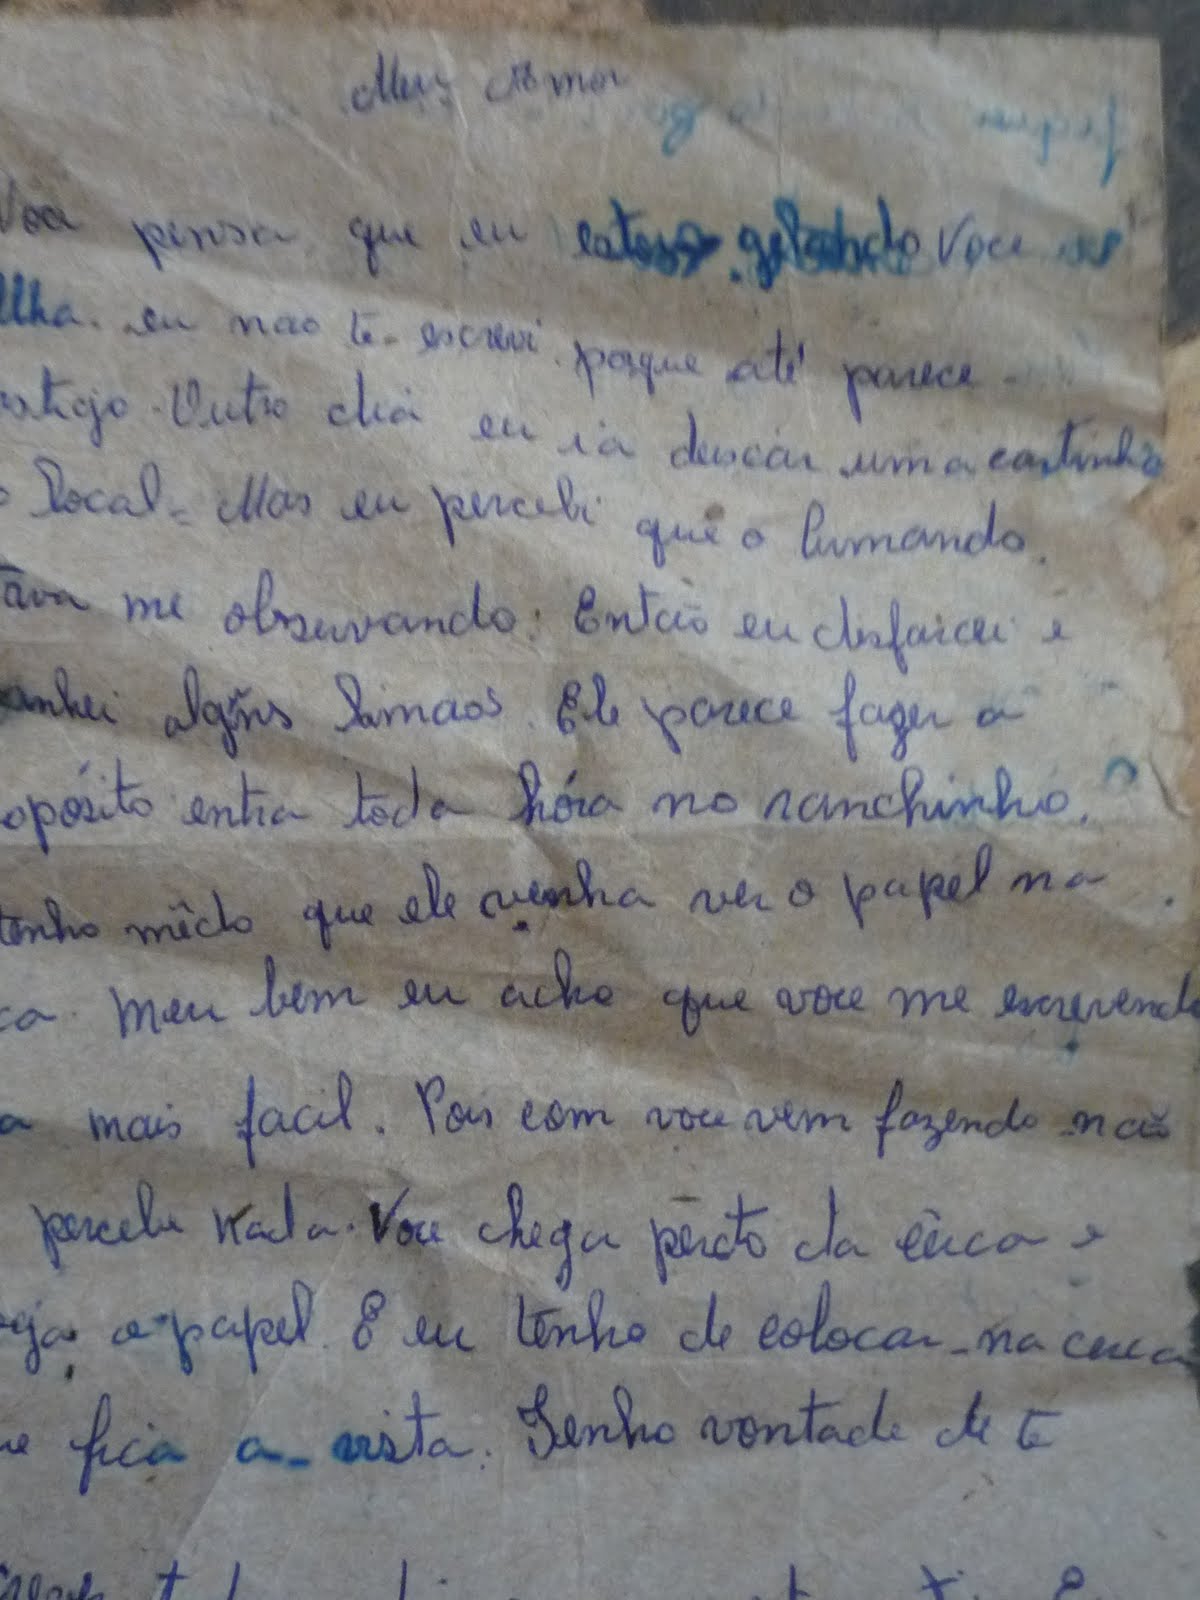 Meu Amor
Voce pensa que eu estou gelando Voce se
eu nao te escrevi porque até parece
Outro dia eu ia deixar uma cartinha
local - Mas eu percebi que o
tava me observando: Então eu disfarcei e
algũns limaos. Ele parece fazer a
opósito entra toda hóra no ranchinho.
tenho mêdo que ele venha ver o papel na
ca. Meu bem eu acho que voce me escrevendo
a mais facil. Pois com voce vem fazendo não
percebe nada. Voce chega perto da cêrca e
o papel. E eu tenho de colocar na cerca
ue fica a vista. Tenho vontade de te